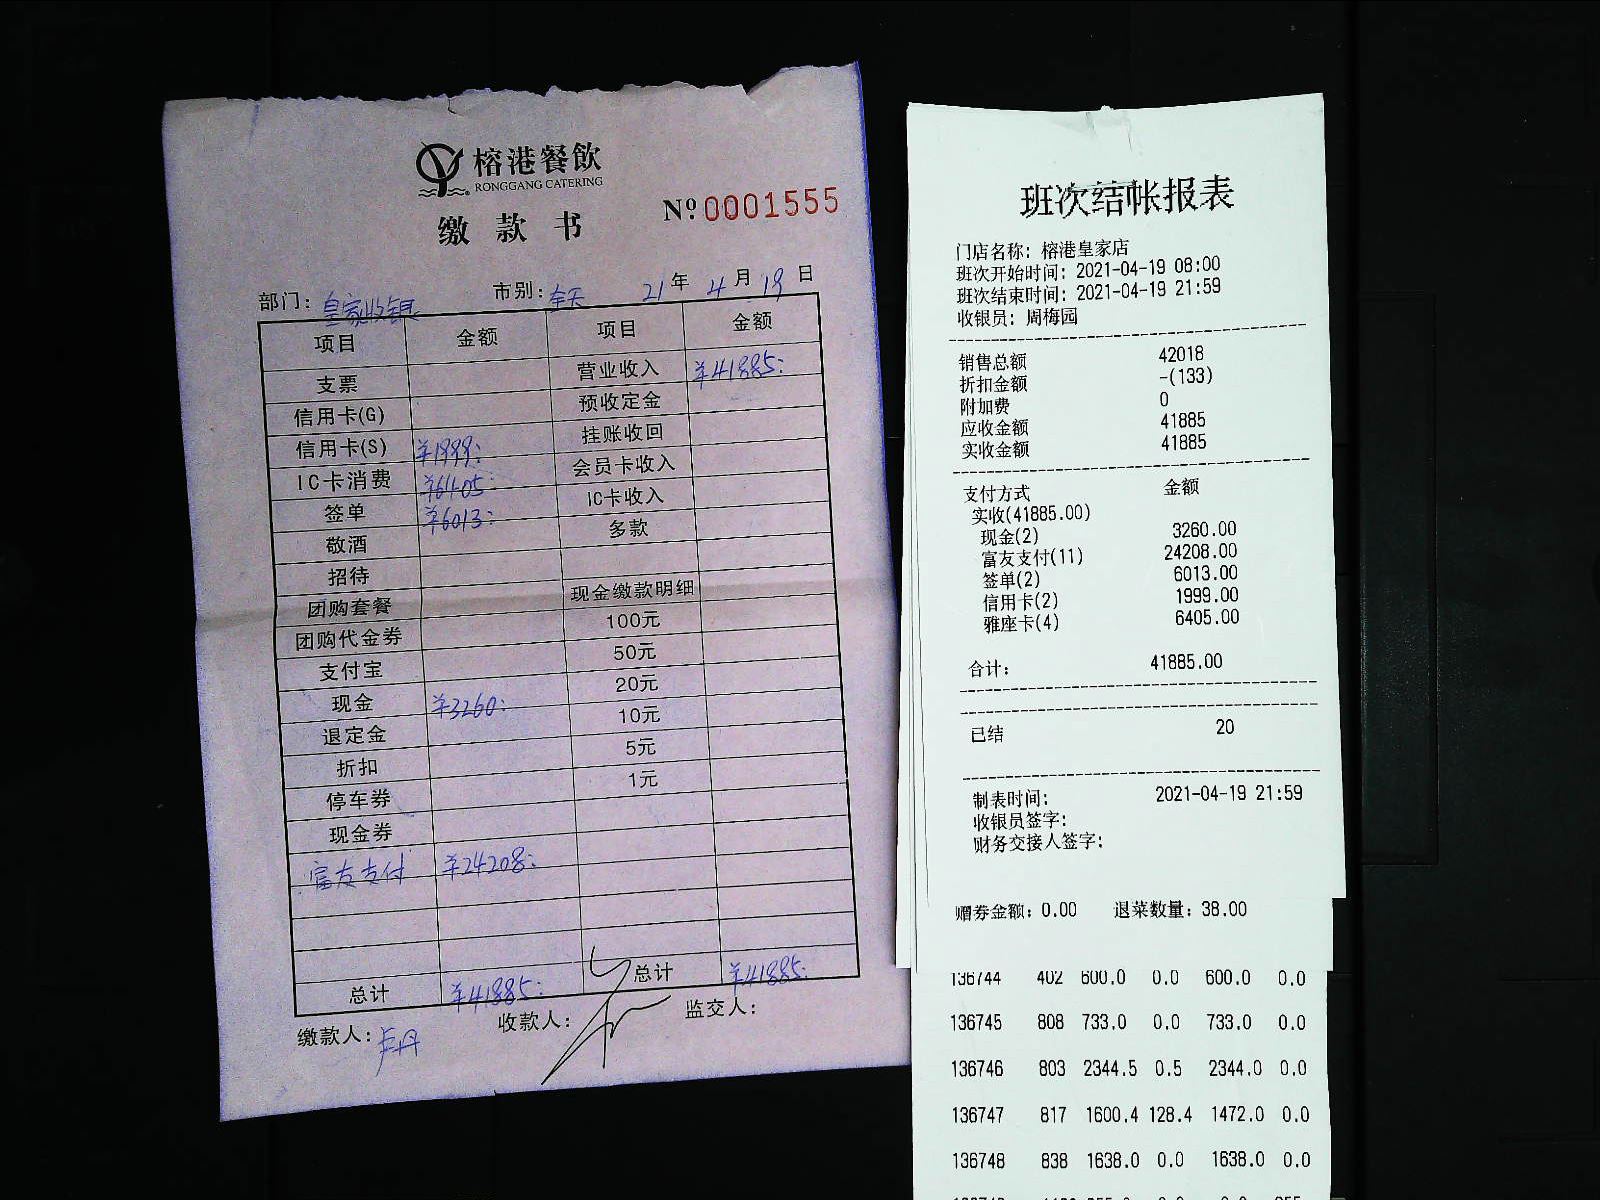 榕港餐飲
RONGGANG CATERING
缴款书
Nº 0001555
部门：皇家收银 市别：全天 21年4月19日
项目 金额 项目 金额
支票 营业收入 ¥41885:
信用卡(G) 预收定金
信用卡(S) ¥1999: 挂账收回
IC卡消费 ¥6405: 会员卡收入
签单 ¥6013: IC卡收入
敬酒 多款
招待
团购套餐 现金缴款明细
团购代金券 100元
支付宝 50元
现金 ¥3260: 20元
退定金 10元
折扣 5元
停车券 1元
现金券
富友支付 ¥24208:
总计 ¥41885: 总计 ¥41885:
缴款人：卢丹 收款人： 监交人：
班次结帐报表
门店名称: 榕港皇家店
班次开始时间: 2021-04-19 08:00
班次结束时间: 2021-04-19 21:59
收银员: 周梅园
销售总额 42018
折扣金额 -(133)
附加费 0
应收金额 41885
实收金额 41885
支付方式 金额
实收(41885.00)
现金(2) 3260.00
富友支付(11) 24208.00
签单(2) 6013.00
信用卡(2) 1999.00
雅座卡(4) 6405.00
合计: 41885.00
已结 20
制表时间: 2021-04-19 21:59
收银员签字:
财务交接人签字:
赠券金额: 0.00 退菜数量: 38.00
136744 402 600.0 0.0 600.0 0.0
136745 808 733.0 0.0 733.0 0.0
136746 803 2344.5 0.5 2344.0 0.0
136747 817 1600.4 128.4 1472.0 0.0
136748 838 1638.0 0.0 1638.0 0.0